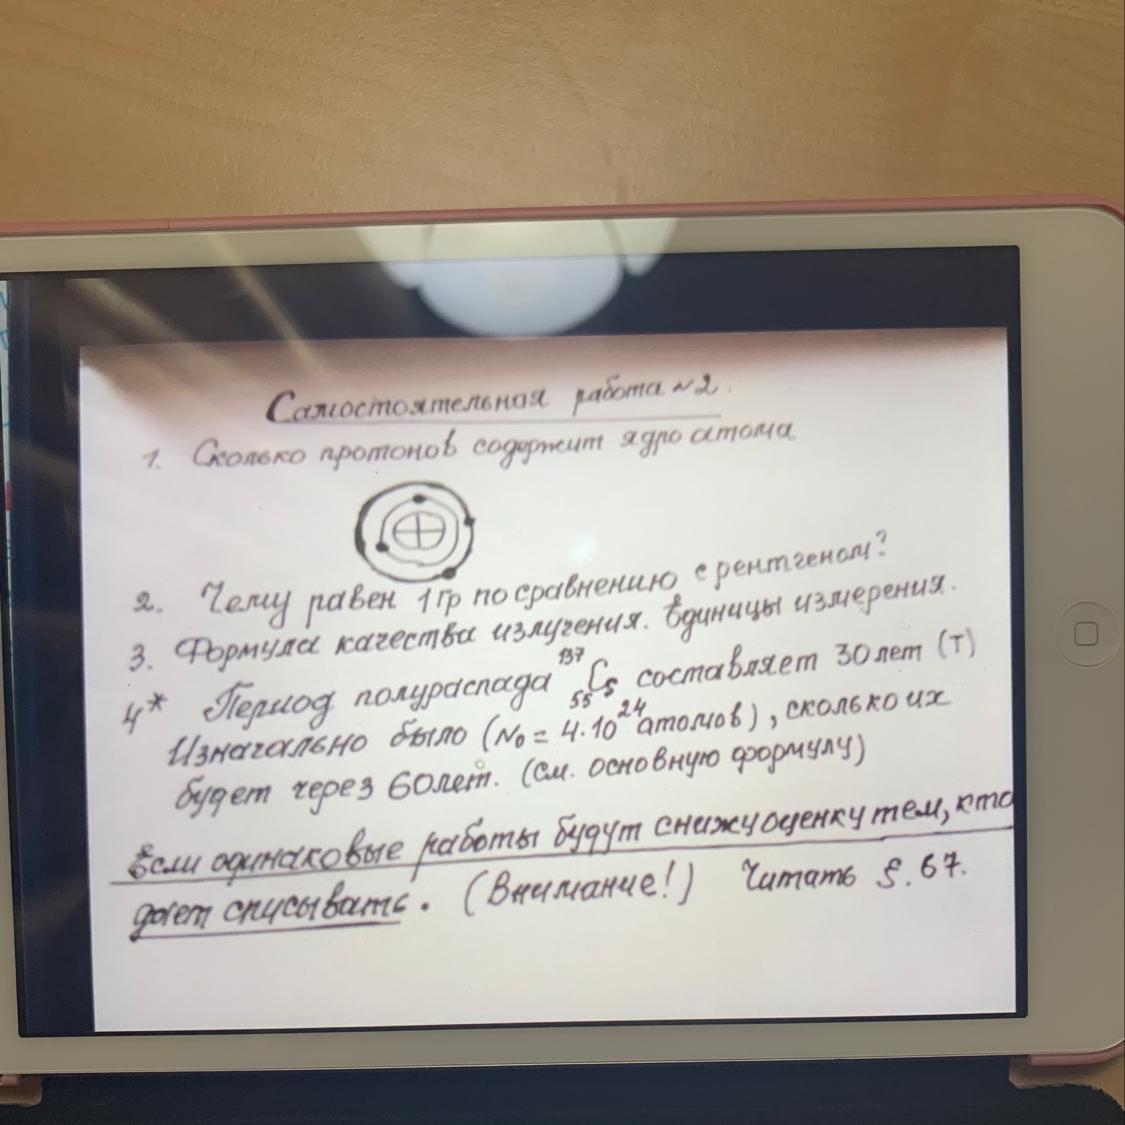 Самостоятельная работа №2.
1. Сколько протонов содержит ядро атома
2. Чему равен 1 Гр по сравнению с рентгеном?
3. Формула качества излучения. Единицы измерения.
4* Период полураспада ¹³⁷₅₅Cs составляет 30 лет (T)
Изначально было (N₀ = 4·10²⁴ атомов), сколько их
будет через 60 лет. (См. основную формулу)
Если одинаковые работы будут снижу оценку тем, кто
дает списывать. (Внимание!) Читать §. 67.